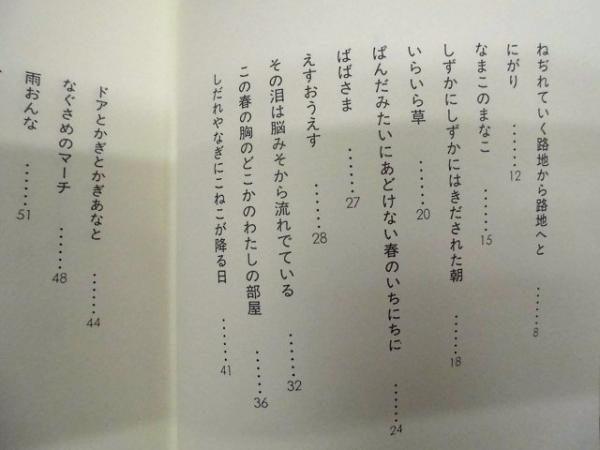 ねぢれていく路地から路地へと ……8
にがり ……12
なまこのまなこ ……15
しずかにしずかにはきだされた朝 ……18
いらいら草 ……20
ぱんだみたいにあどけない春のいちにちに ……24
ばばさま ……27
えすおうえす ……28
その泪は脳みそから流れでている ……32
この春の胸のどこかのわたしの部屋 ……36
しだれやなぎにこねこが降る日 ……41
ドアとかぎとかぎあなと ……44
なぐさめのマーチ ……48
雨おんな ……51